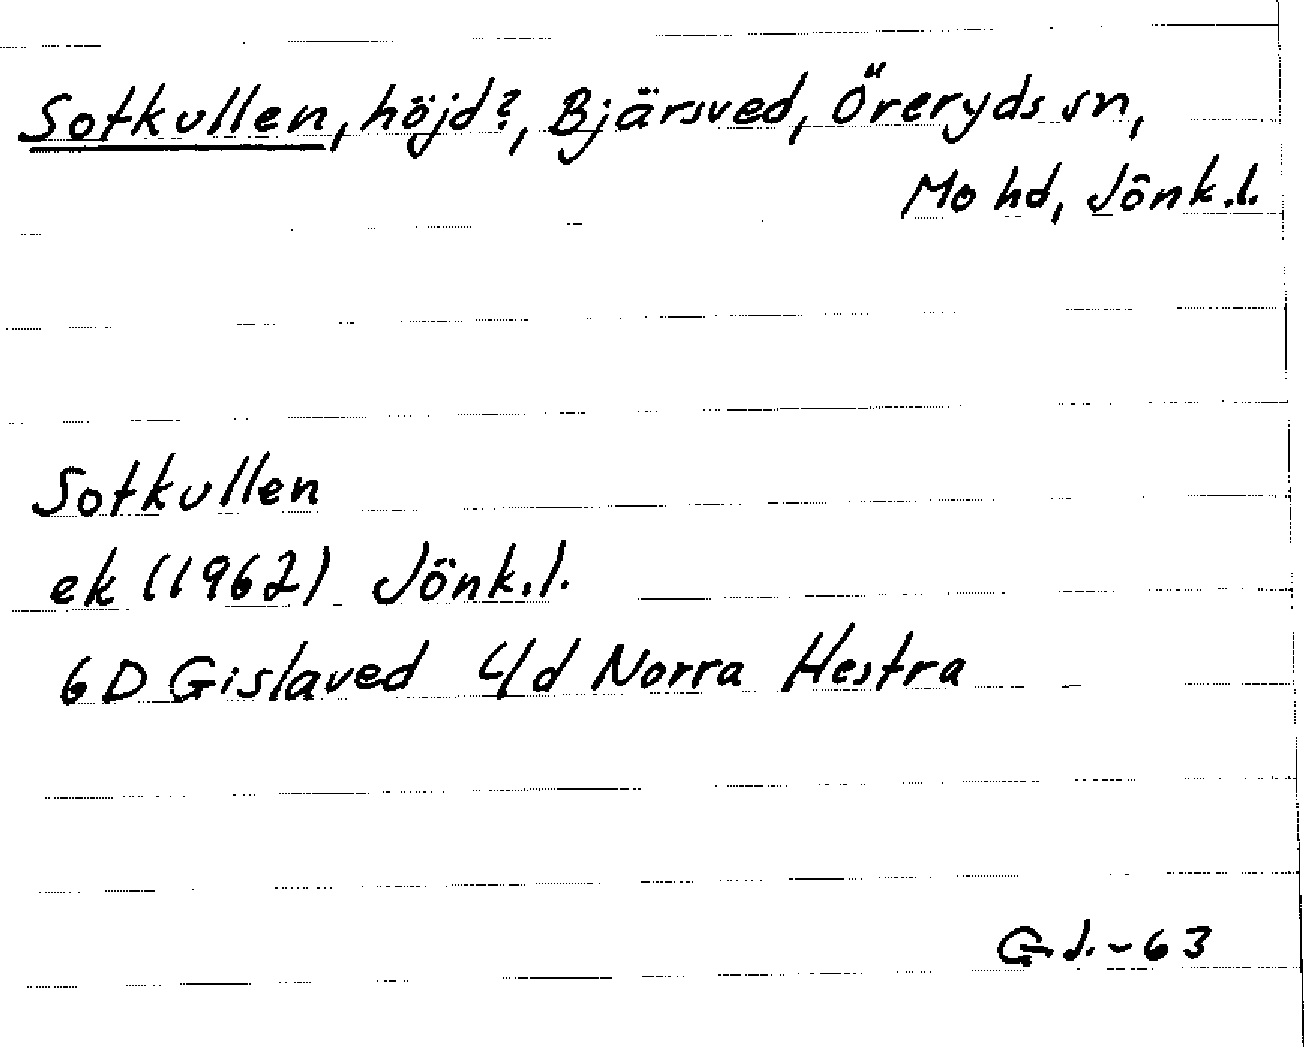 Sotkullen, höjd?, Bjärsved, Öreryds sn,
Mo hd, Jönk.l.
Sotkullen
ek (1962) Jönk.l.
6D Gislaved 4/d Norra Hestra
G.J.-63